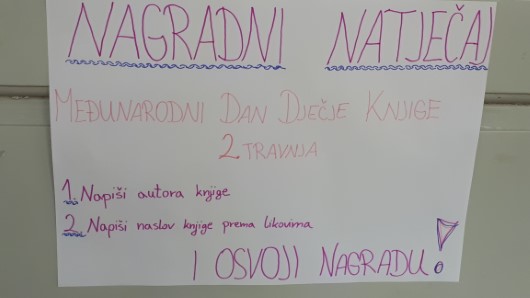 NAGRADNI NATJEČAJ
MEĐUNARODNI DAN DJEČJE KNJIGE
2 TRAVNJA
1. Napiši autora knjige
2. Napiši naslov knjige prema likovima
I OSVOJI NAGRADU!